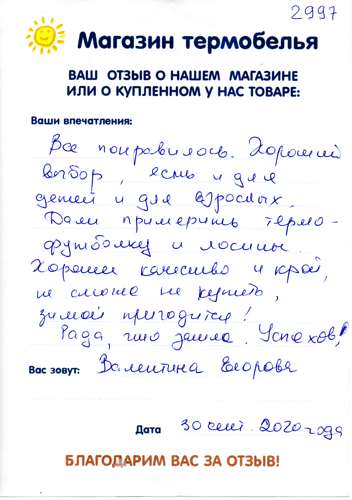 2997
Магазин термобелья
ВАШ ОТЗЫВ О НАШЕМ МАГАЗИНЕ
ИЛИ О КУПЛЕННОМ У НАС ТОВАРЕ:
Ваши впечатления:
Все понравилось. Хороший
выбор, есть и для
детей и для взрослых.
Дали примерить термо-
футболку и лосины.
Хорошее качество и крой,
не смогла не купить,
зимой пригодится!
Рада, что зашла. Успехов!
Вас зовут: Валентина Егорова
Дата 30 сент. 2020 года
БЛАГОДАРИМ ВАС ЗА ОТЗЫВ!